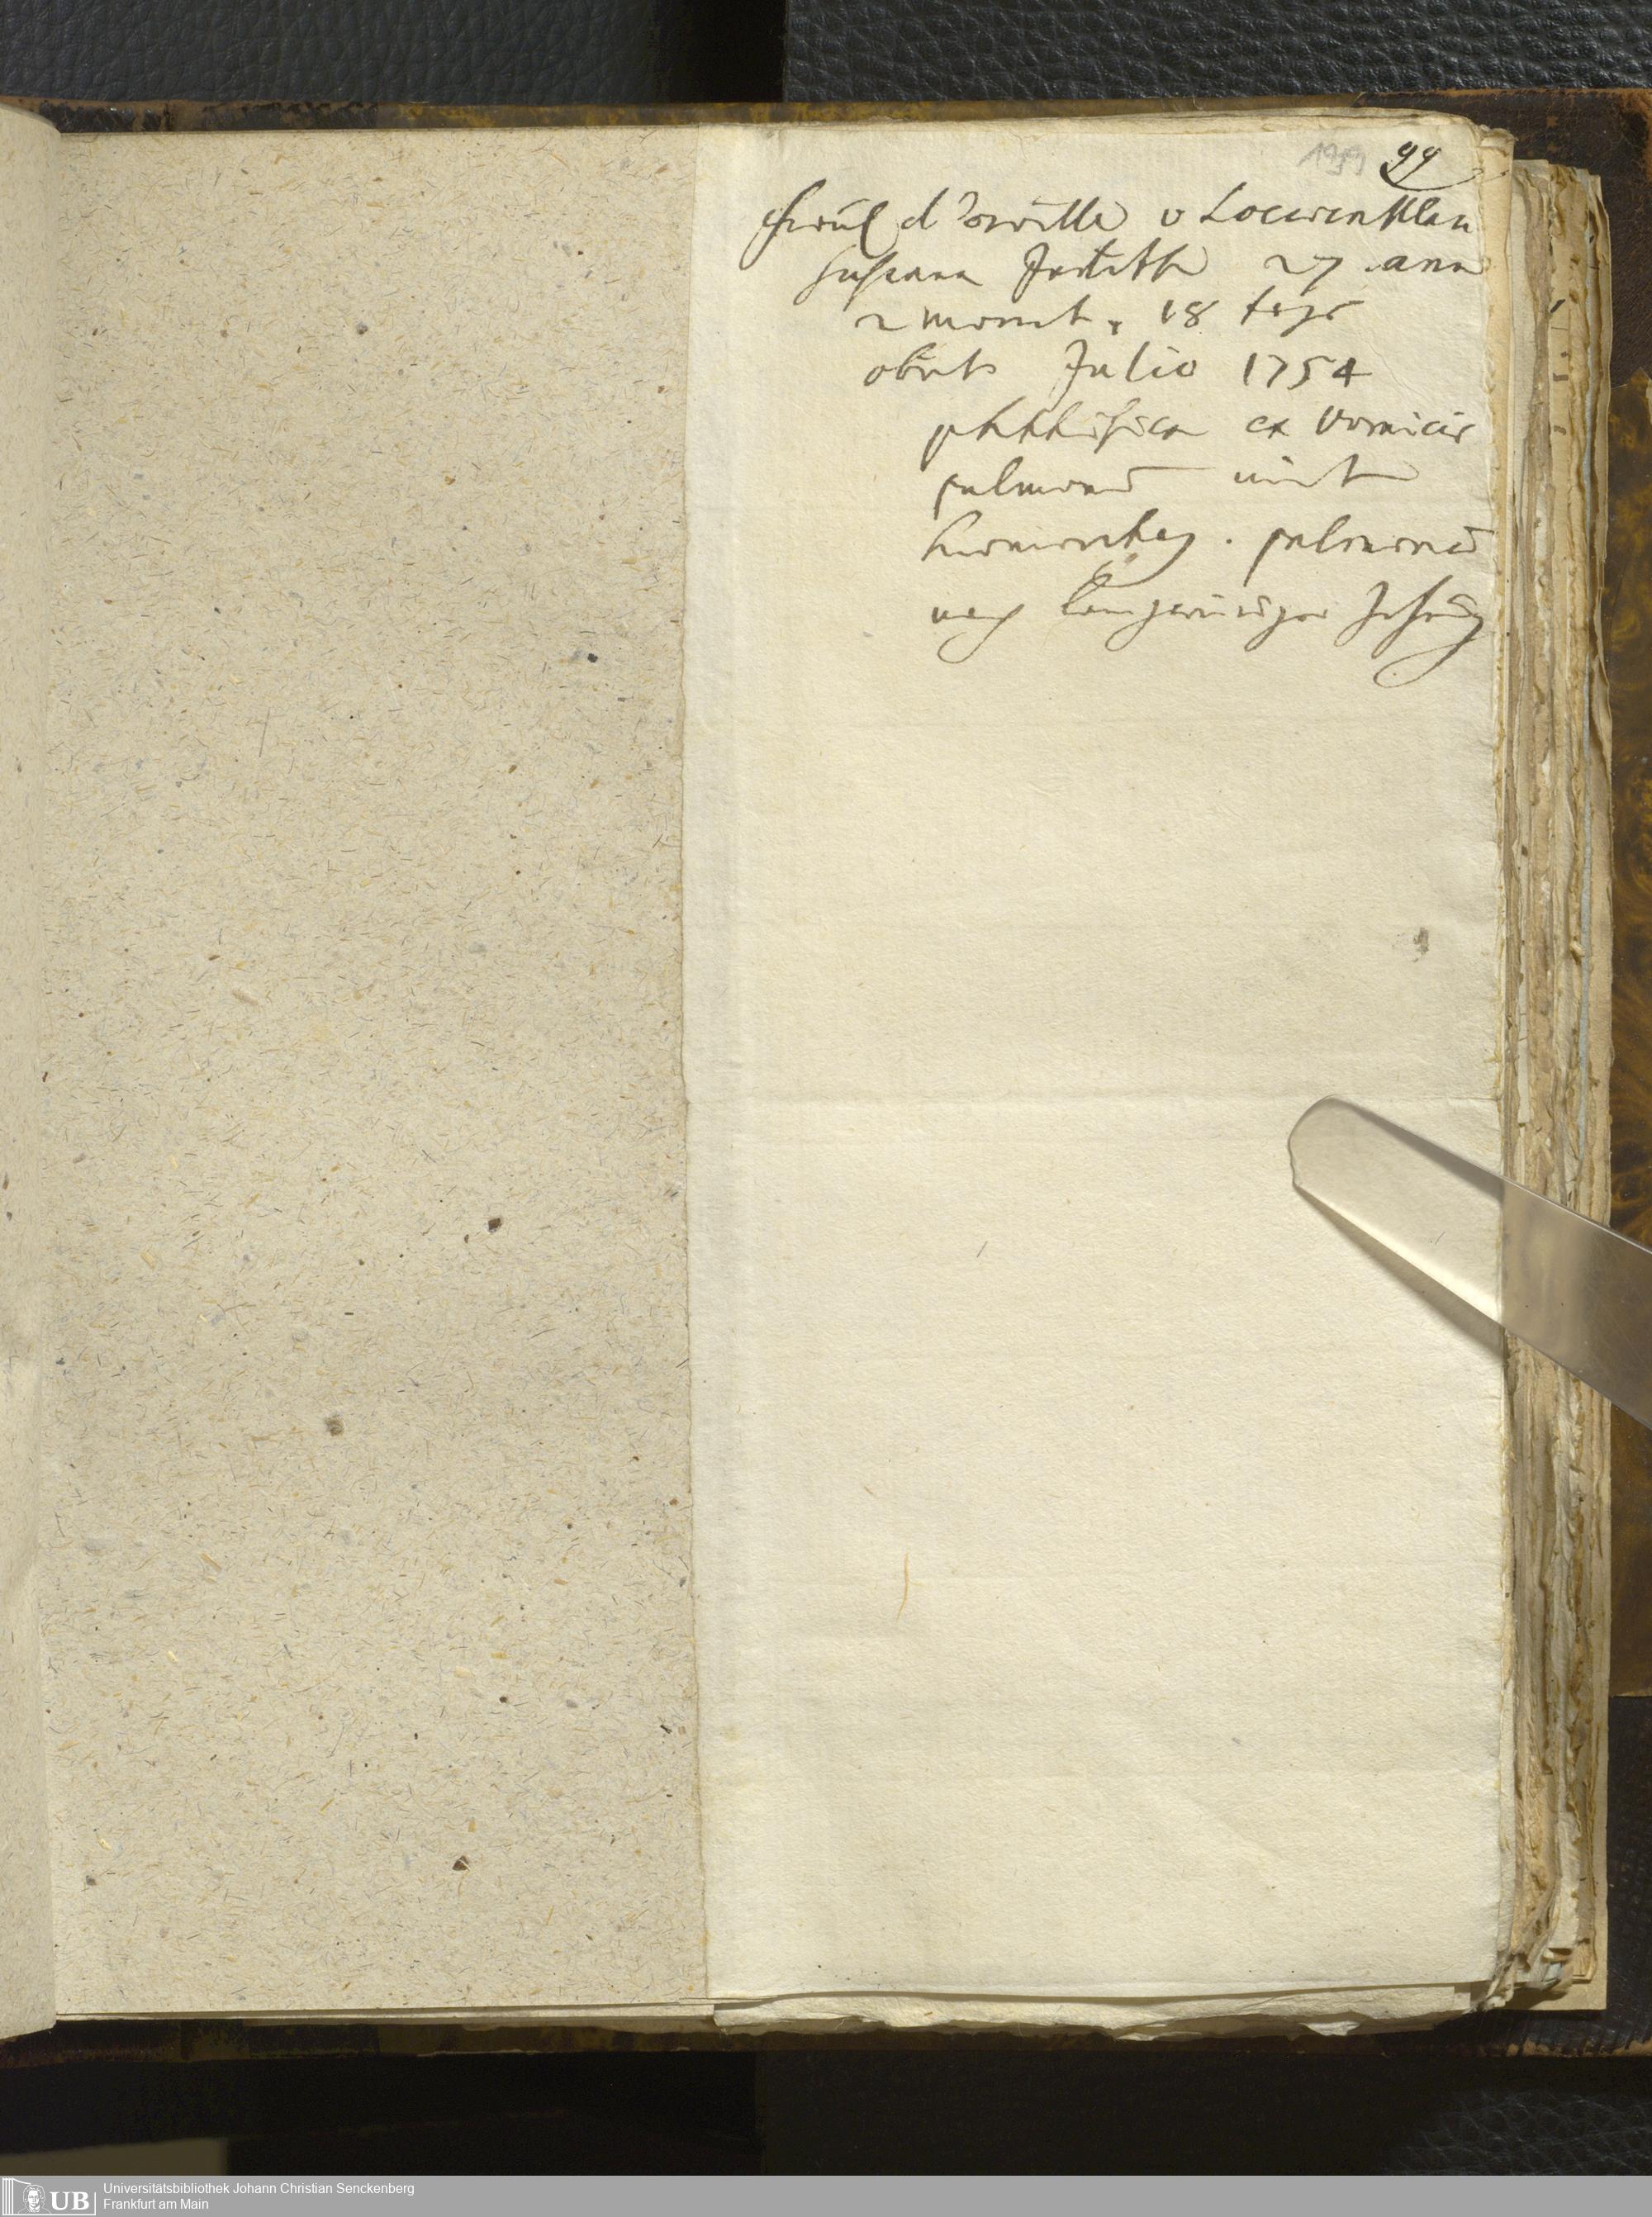 99
Fräul d'orville v Loewenklau
Susanna Judith 27 ann
2 monat. 18 tage
obiit Julio 1754
phthisica ex vomicis
pulmonū mit
haemorrhag. pulmonū
nach langwüriger
Universitätsbibliothek Johann Christian Senckenberg
Frankfurt am Main
UB